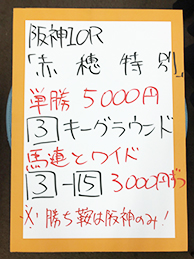 阪神10R
「赤穂特別」
単勝5000円
3 キーグラウンド
馬連とワイド
3-15 3000円ずつ
※勝ち鞍は阪神のみ!